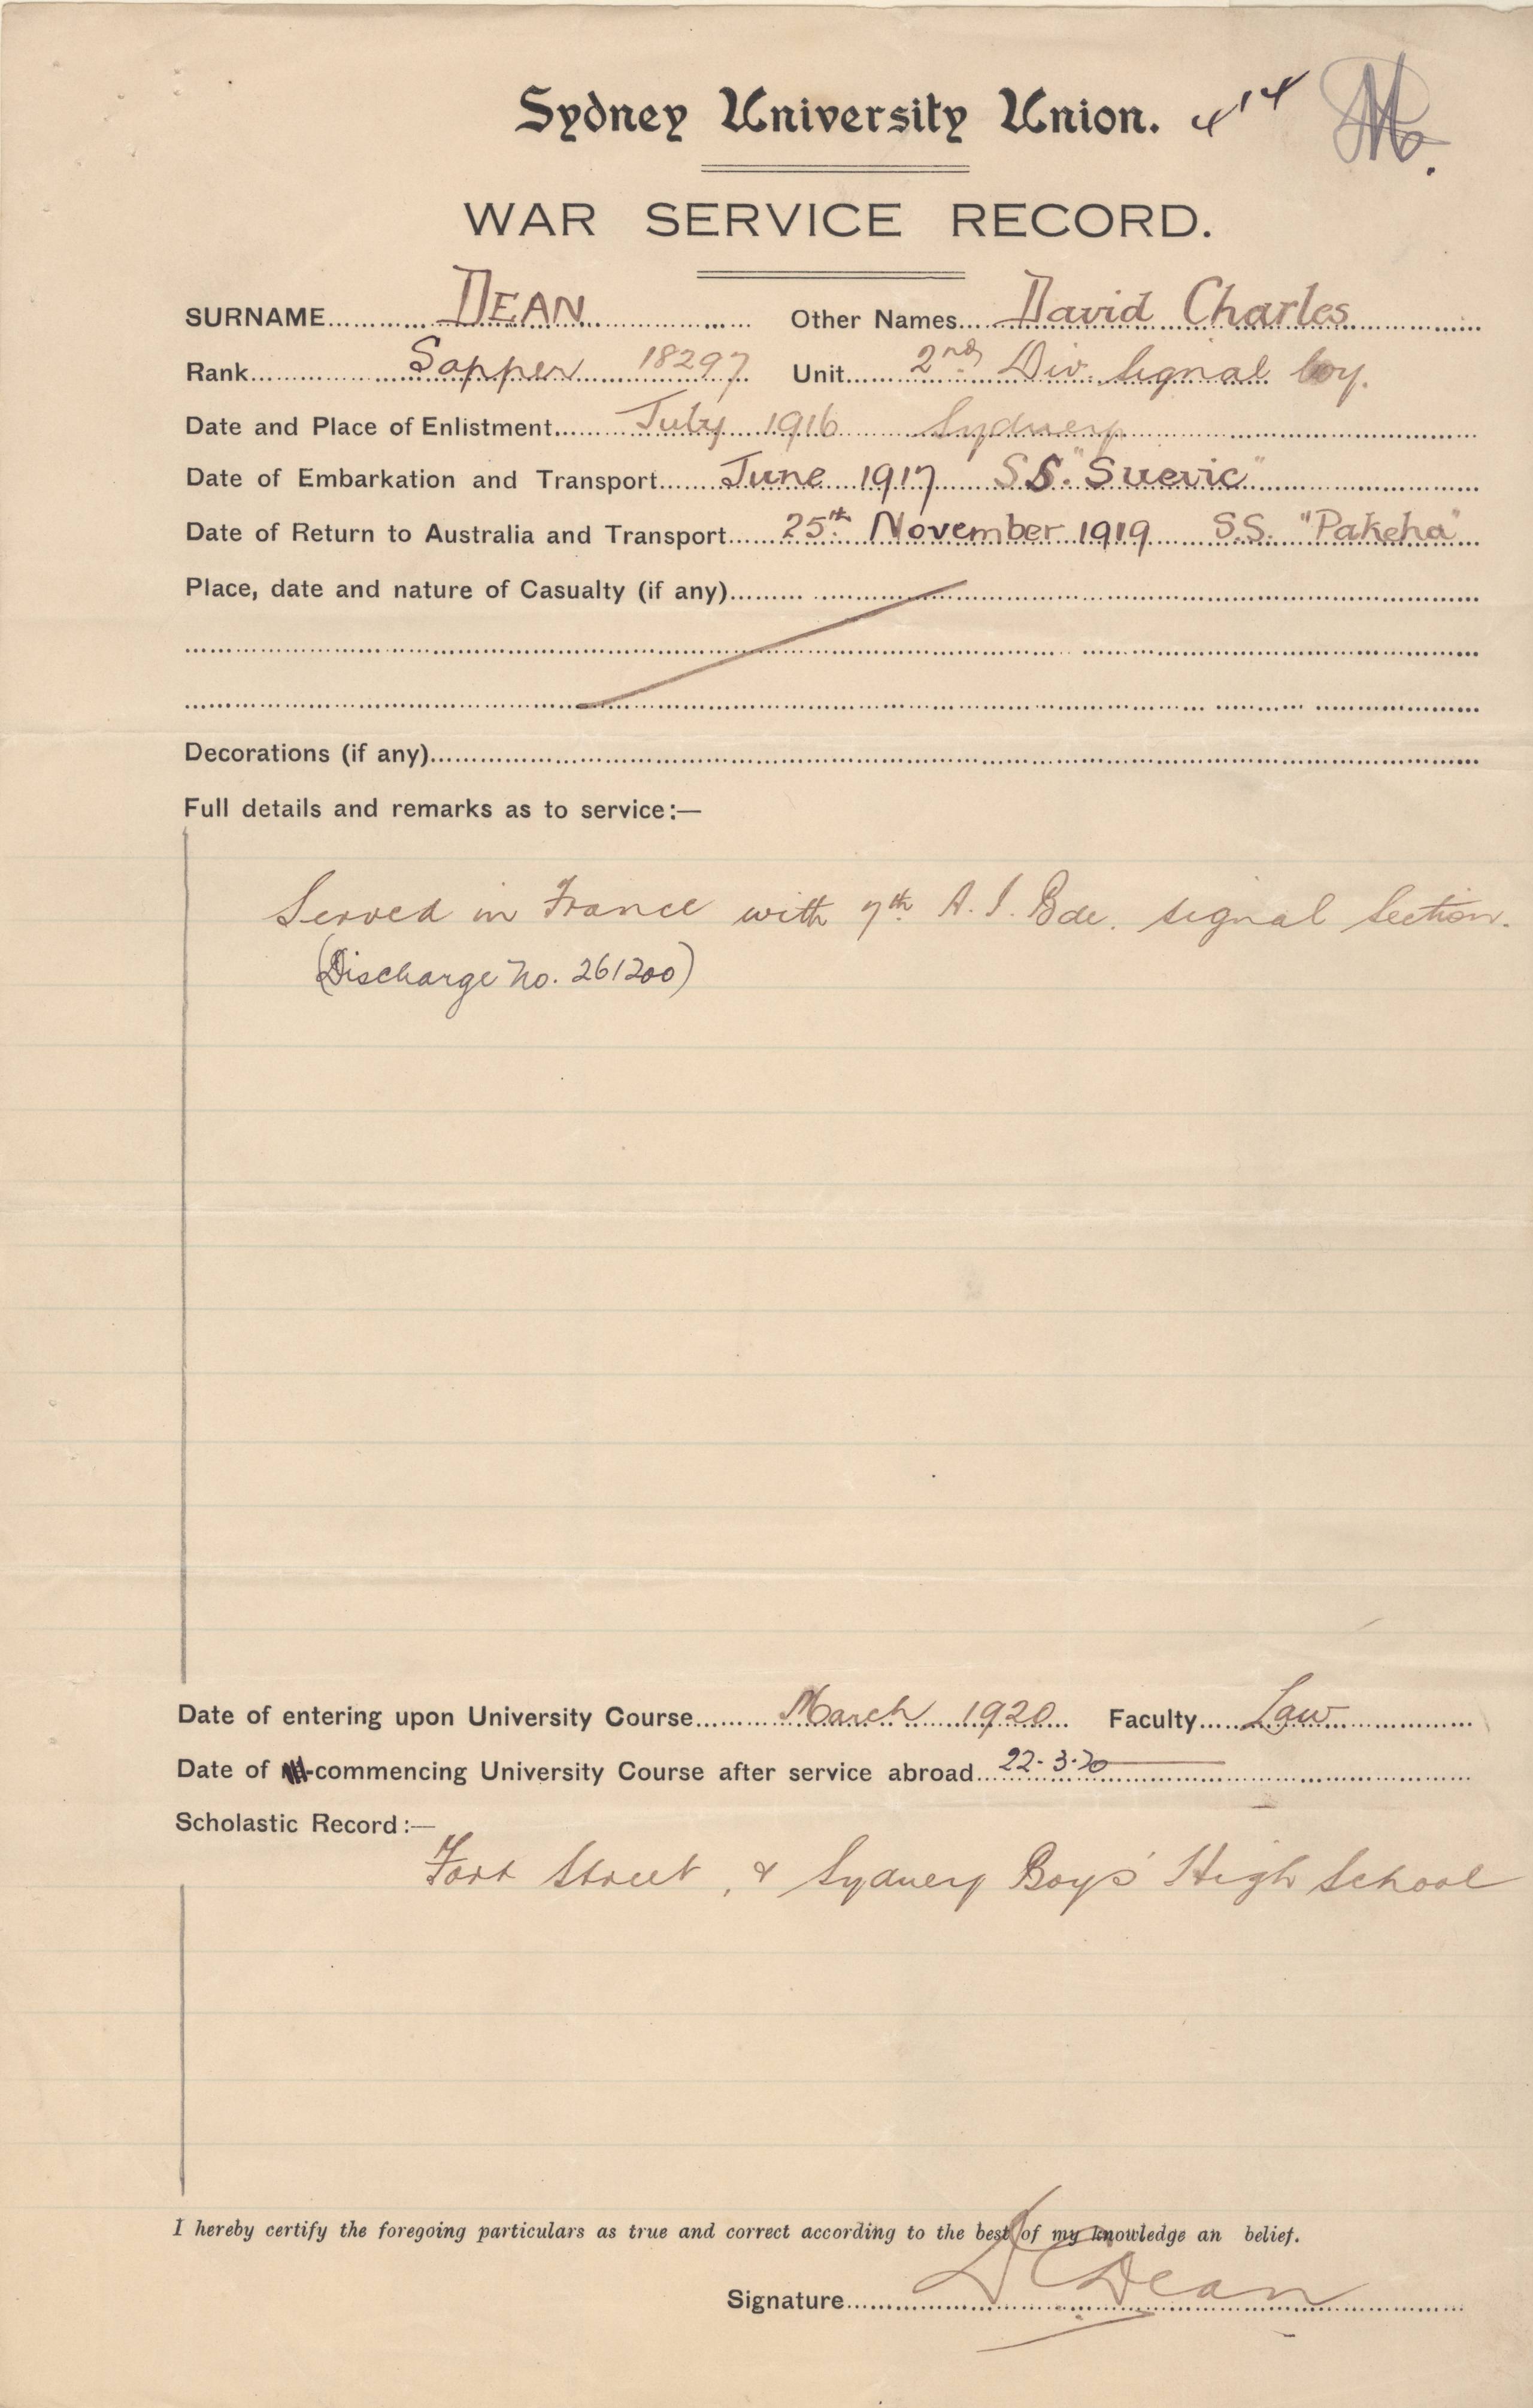 Sydney University Union.
WAR SERVICE RECORD.
SURNAME DEAN Other Names David Charles
Rank Sapper 18297 Unit 2nd Div. Signal Coy.
Date and Place of Enlistment July 1916 Sydney
Date of Embarkation and Transport June 1917 S.S. "Suevic"
Date of Return to Australia and Transport 25th November 1919 S.S. "Pakeha"
Place, date and nature of Casualty (if any)
Decorations (if any)
Full details and remarks as to service:—
Served in France with 7th A. I. Bde. Signal Section.
(Discharge No. 261200)
Date of entering upon University Course March 1920 Faculty Law
Date of -commencing University Course after service abroad 22-3-20
Scholastic Record:—
Fort Street, & Sydney Boys' High School
I hereby certify the foregoing particulars as true and correct according to the best of my knowledge an belief.
Signature D C Dean